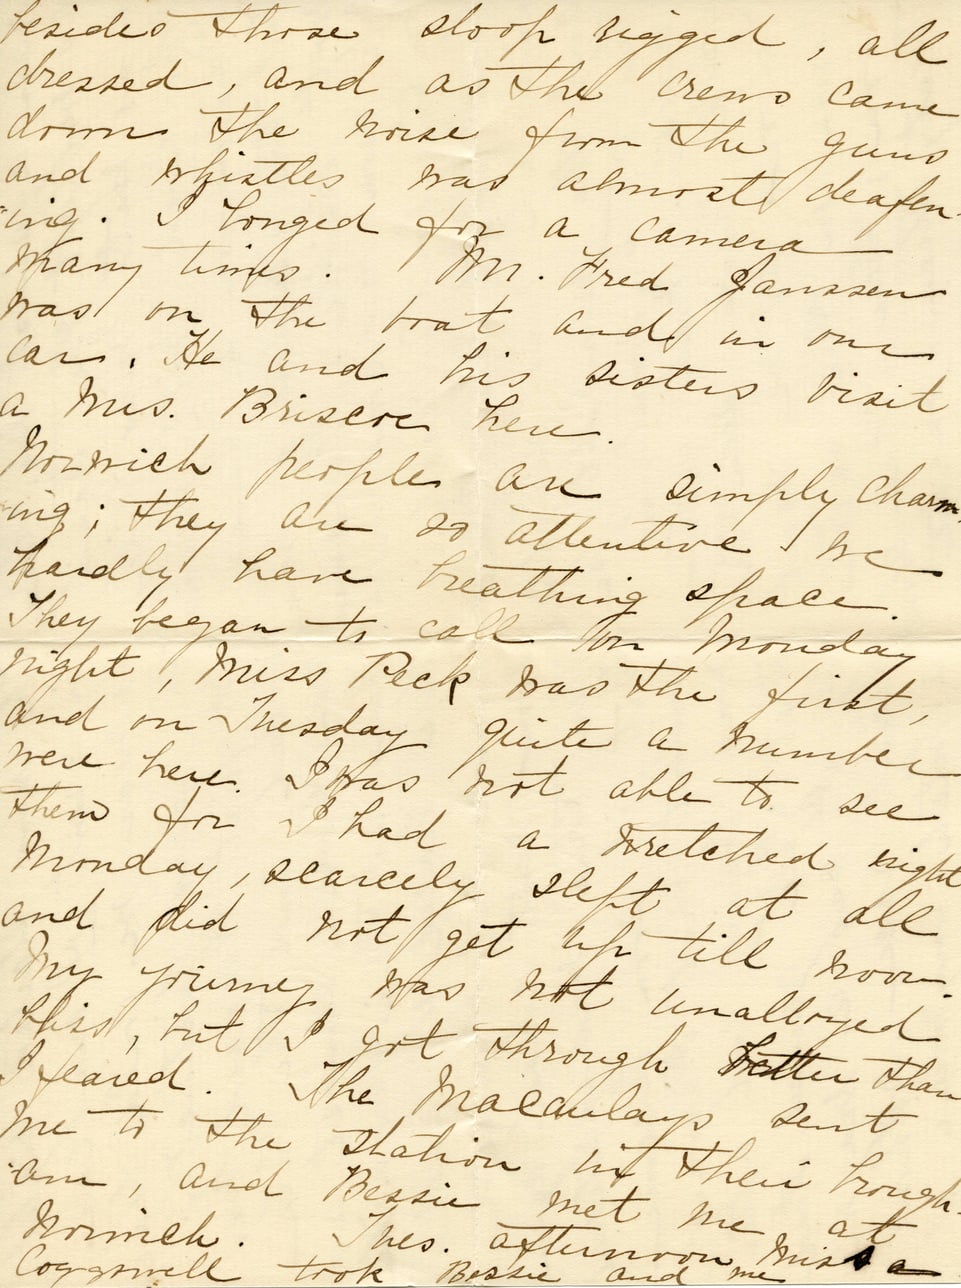 besides those sloop rigged, all
dressed, and as the crews came
down the noise from the guns
and whistles was almost deafen-
"ing. I longed for a camera
many times. Mr. Fred Janssen
was on the boat and in our
car. He and his sisters visit
a Mrs. Briscoe here.
Norwich people are simply charm-
"ing; they are so attentive we
hardly have breathing space.
They began to call on Monday
night, Miss Peck was the first,
and on Tuesday quite a number
were here. I was not able to see
them for I had a wretched night
Monday, scarcely slept at all
and did not get up till noon.
My journey was not unalloyed
bliss, but I got through better than
I feared. The Macaulays sent
me to the station in their brough-
"am, and Bessie met me at
Norwich. Tues. afternoon Miss a
Coggswell took Bessie and me